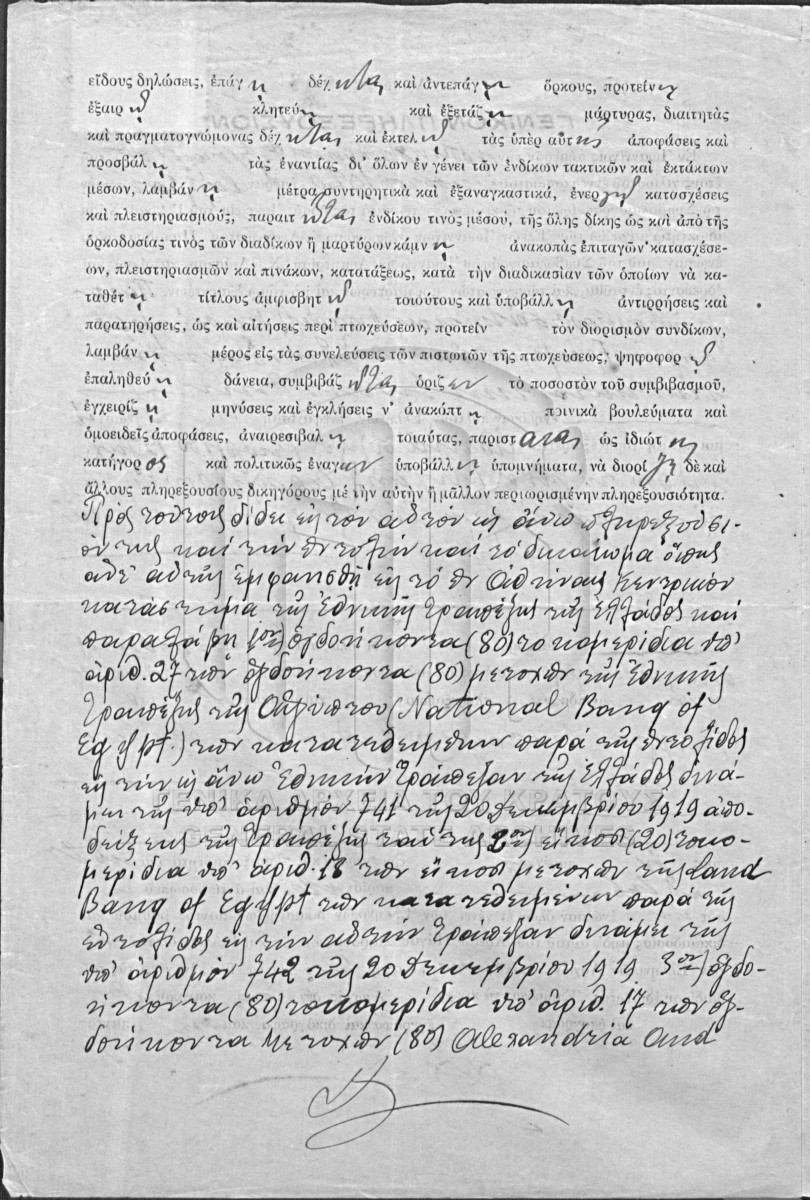 εἴδους δηλώσεις, ἐπάγῃ δέχηται καὶ ἀντεπάγῃ ὅρκους, προτείνῃ
ἐξαιρῇ κλητεύῃ καὶ ἐξετάζῃ μάρτυρας, διαιτητὰς
καὶ πραγματογνώμονας δέχηται καὶ ἐκτελῇ τὰς ὑπὲρ αὐτῆς ἀποφάσεις καὶ
προσβάλῃ τὰς ἐναντίας δι' ὅλων ἐν γένει τῶν ἐνδίκων τακτικῶν καὶ ἐκτάκτων
μέσων, λαμβάνῃ μέτρα συντηρητικὰ καὶ ἐξαναγκαστικά, ἐνεργῇ κατασχέσεις
καὶ πλειστηριασμούς, παραιτῆται ἐνδίκου τινὸς μέσου, τῆς ὅλης δίκης ὡς καὶ ἀπὸ τῆς
ὁρκοδοσίας τινὸς τῶν διαδίκων ἢ μαρτύρων κάμνῃ ἀνακοπὰς ἐπιταγῶν κατασχέσε-
ων, πλειστηριασμῶν καὶ πινάκων, κατατάξεως, κατὰ τὴν διαδικασίαν τῶν ὁποίων νὰ κα-
ταθέτῃ τίτλους ἀμφισβητῇ τοιούτους καὶ ὑποβάλλῃ ἀντιρρήσεις καὶ
παρατηρήσεις, ὡς καὶ αἰτήσεις περὶ πτωχεύσεων, προτείν τὸν διορισμὸν συνδίκων,
λαμβάνῃ μέρος εἰς τὰς συνελεύσεις τῶν πιστωτῶν τῆς πτωχεύσεως, ψηφοφορῇ
ἐπαληθεύῃ δάνεια, συμβιβάζηται ὁρίζων τὸ ποσοστὸν τοῦ συμβιβασμοῦ,
ἐγχειρίζῃ μηνύσεις καὶ ἐγκλήσεις ν' ἀνακόπτῃ ποινικὰ βουλεύματα καὶ
ὁμοειδεῖς ἀποφάσεις, ἀναιρεσιβαλῃ τοιαύτας, παρίσταται ὡς ἰδιώτης
κατήγορος καὶ πολιτικῶς ἐναγων ὑποβάλλῃ ὑπομνήματα, νὰ διορίζῃ δὲ καὶ
ἄλλους πληρεξουσίους δικηγόρους μὲ τὴν αὐτὴν ἢ μᾶλλον περιωρισμένην πληρεξουσιότητα.
Πρὸς τούτοις δίδει εἰς τὸν αὐτὸν ὡς ἄνω πληρεξούσι-
όν της καὶ τὴν ἐντολὴν καὶ τὸ δικαίωμα ὅπως
ἀντ' αὐτῆς ἐμφανισθῇ εἰς τὸ ἐν Ἀθήναις Κεντρικὸν
κατάστημα τῆς Ἐθνικῆς Τραπέζης τῆς Ἑλλάδος καὶ
παραλάβῃ 1ον) ὀγδοήκοντα (80) τοκομερίδια ὑπ'
ἀριθ. 27 τῶν ὀγδοήκοντα (80) μετοχῶν τῆς Ἐθνικῆς
Τραπέζης τῆς Αἰγύπτου (National Bang of
Egypt.) τῶν κατατεθειμένων παρὰ τῆς ἐντολίδος
εἰς τὴν ὡς ἄνω Ἐθνικὴν Τράπεζαν τῆς Ἑλλάδος δυνά-
μει τῆς ὑπ' ἀριθμὸν 741 τῆς 20 Δεκεμβρίου 1919 ἀπο-
δείξεως τῆς Τραπέζης ταύτης 2ον) εἴκοσι (20) τοκο-
μερίδια ὑπ' ἀριθ. 18 τῶν εἴκοσι μετοχῶν τῆς Land
Bang of Egypt τῶν κατατεθειμένων παρὰ τῆς
ἐντολίδος εἰς τὴν αὐτὴν Τράπεζαν δυνάμει τῆς
ὑπ' ἀριθμὸν 742 τῆς 20 Δεκεμβρίου 1919 3ον) ὀγδο-
ήκοντα (80) τοκομερίδια ὑπ' ἀριθ. 17 τῶν ὀγ-
δοήκοντα μετοχῶν (80) Alexandria and